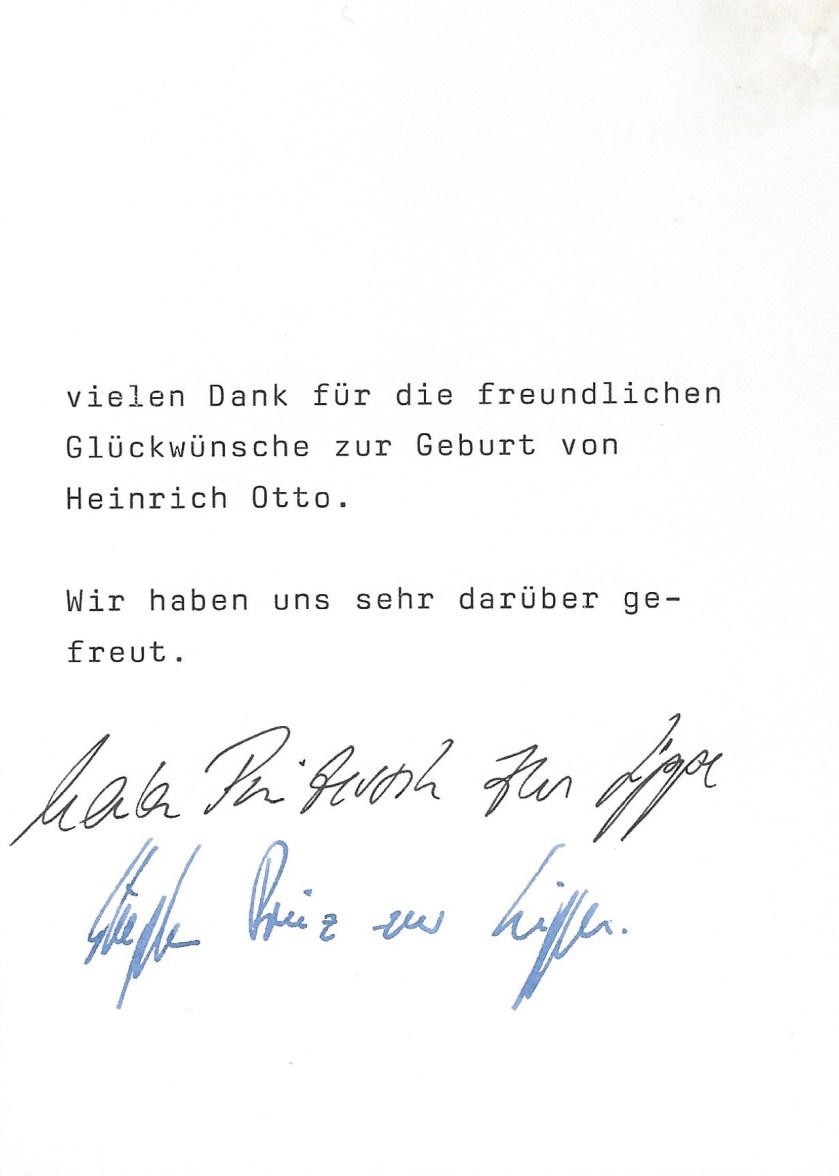 vielen Dank für die freundlichen
Glückwünsche zur Geburt von
Heinrich Otto.
Wir haben uns sehr darüber ge-
freut.
Prinzessin zur Lippe
Stephan Prinz zur Lippe.